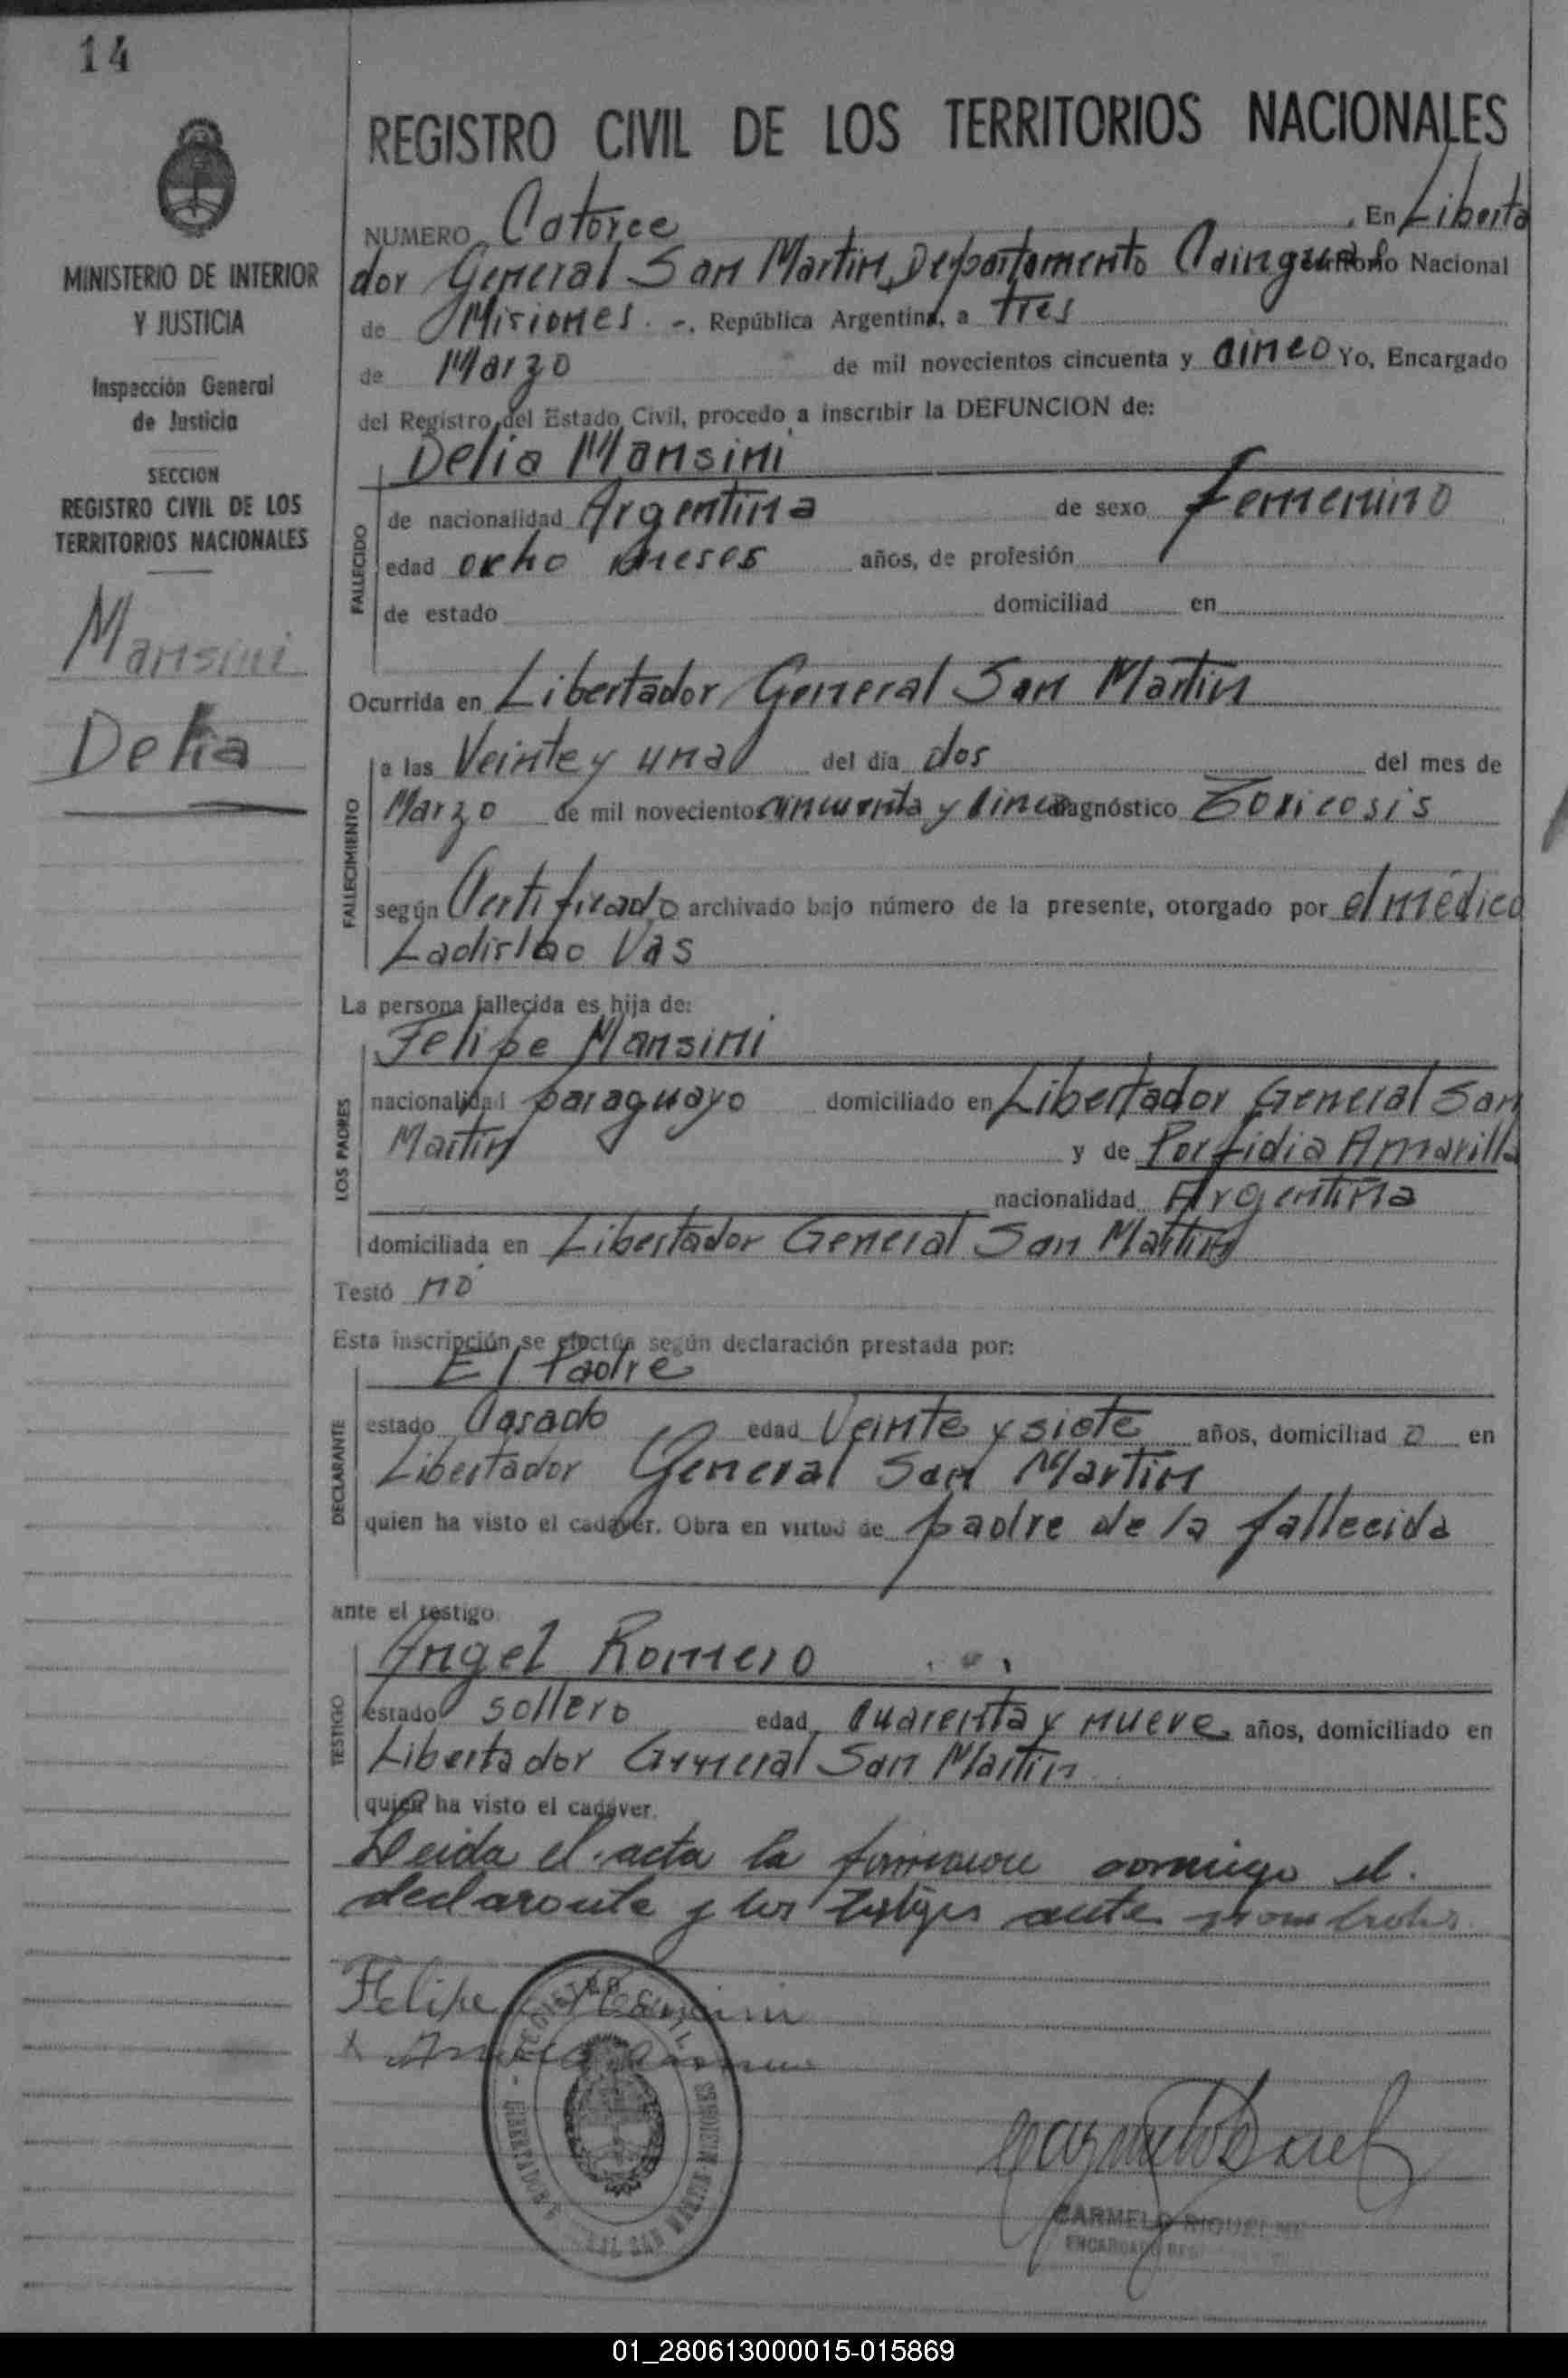 14
REGISTRO CIVIL DE LOS TERRITORIOS NACIONALES
MINISTERIO DE INTERIOR
Y JUSTICIA
Inspección General
de Justicia
SECCION
REGISTRO CIVIL DE LOS
TERRITORIOS NACIONALES
Mansini
Delia
NUMERO Catorce , En Liberta
dor General San Martin, Departamento Cainguas Territorio Nacional
de Misiones. -. República Argentina, a tres
de Marzo de mil novecientos cincuenta y cinco Yo, Encargado
del Registro del Estado Civil, procedo a inscribir la DEFUNCION de:
FALLECIDO
Delia Mansini
de nacionalidad Argentina de sexo femenino
edad ocho meses años, de profesión
de estado domiciliad en
Ocurrida en Libertador General San Martin
FALLECIMIENTO
a las Veinte y una del día dos del mes de
Marzo de mil novecientos cincuenta y cinco diagnóstico Toxicosis
según Certificado archivado bajo número de la presente, otorgado por el médico
Ladislao Vas
La persona fallecida es hija de:
LOS PADRES
Felipe Mansini
nacionalidad paraguayo domiciliado en Libertador General San
Martin y de Porfidia Amarilla
nacionalidad Argentina
domiciliada en Libertador General San Martin
Testó no
Esta inscripción se efectúa según declaración prestada por:
DECLARANTE
El Padre
estado Casado edad Veinte y siete años, domiciliad o en
Libertador General San Martin
quien ha visto el cadáver. Obra en virtud de padre de la fallecida
ante el testigo
TESTIGO
Angel Romero
estado soltero edad cuarenta y nueve años, domiciliado en
Libertador General San Martin
quien ha visto el cadáver.
Leida el acta la firmaron conmigo el
declarante y los testigos ante nombrados
Felipe Mansini
REGISTRO CIVIL
CARMELO RIQUELME
ENCARGADO REG
01_280613000015-015869